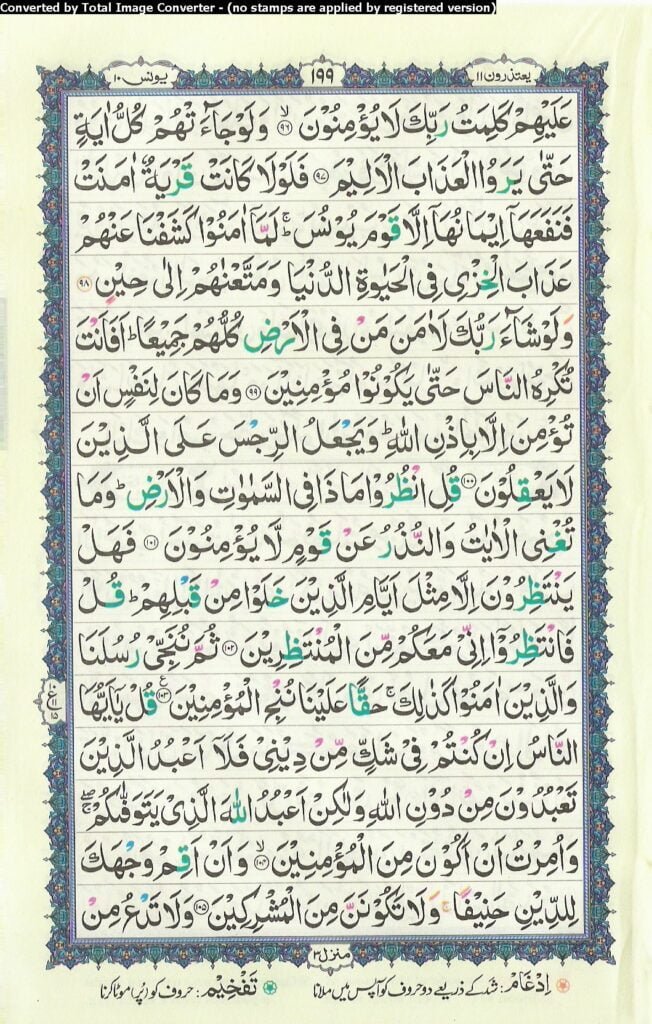 Converted by Total Image Converter - (no stamps are applied by registered version)
یعتذرون ۱۱
۱۹۹
یونس ۱۰
عَلَيْهِمْ كَلِمَتُ رَبِّكَ لَا يُؤْمِنُوْنَ ۙ‏﴿۹۶﴾ وَلَوْ جَآءَتْهُمْ كُلُّ اٰيَةٍ
حَتّٰى يَرَوُا الْعَذَابَ الْاَلِيْمَ ﴿۹۷﴾ فَلَوْلَا كَانَتْ قَرْيَةٌ اٰمَنَتْ
فَنَفَعَهَاۤ اِيْمَانُهَاۤ اِلَّا قَوْمَ يُوْنُسَ ؕ لَمَّاۤ اٰمَنُوْا كَشَفْنَا عَنْهُمْ
عَذَابَ الْخِزْىِ فِى الْحَيٰوةِ الدُّنْيَا وَمَتَّعْنٰهُمْ اِلٰى حِيْنٍ ﴿۹۸﴾
وَلَوْ شَآءَ رَبُّكَ لَاٰمَنَ مَنْ فِى الْاَرْضِ كُلُّهُمْ جَمِيْعًا ؕ اَفَاَنْتَ
تُكْرِهُ النَّاسَ حَتّٰى يَكُوْنُوْا مُؤْمِنِيْنَ ﴿۹۹﴾ وَمَا كَانَ لِنَفْسٍ اَنْ
تُؤْمِنَ اِلَّا بِاِذْنِ اللّٰهِ ؕ وَيَجْعَلُ الرِّجْسَ عَلَى الَّذِيْنَ
لَا يَعْقِلُوْنَ ﴿۱۰۰﴾ قُلِ انْظُرُوْا مَاذَا فِى السَّمٰوٰتِ وَالْاَرْضِ ؕ وَمَا
تُغْنِى الْاٰيٰتُ وَالنُّذُرُ عَنْ قَوْمٍ لَّا يُؤْمِنُوْنَ ﴿۱۰۱﴾ فَهَلْ
يَنْتَظِرُوْنَ اِلَّا مِثْلَ اَيَّامِ الَّذِيْنَ خَلَوْا مِنْ قَبْلِهِمْ ؕ قُلْ
فَانْتَظِرُوْۤا اِنِّىْ مَعَكُمْ مِّنَ الْمُنْتَظِرِيْنَ ﴿۱۰۲﴾ ثُمَّ نُنَجِّىْ رُسُلَنَا
وَالَّذِيْنَ اٰمَنُوْا كَذٰلِكَ ۚ حَقًّا عَلَيْنَا نُنْجِ الْمُؤْمِنِيْنَ ﴿۱۰۳﴾ ع قُلْ يٰۤاَيُّهَا
ع ۱۱ ۱۵
النَّاسُ اِنْ كُنْتُمْ فِىْ شَكٍّ مِّنْ دِيْنِىْ فَلَاۤ اَعْبُدُ الَّذِيْنَ
تَعْبُدُوْنَ مِنْ دُوْنِ اللّٰهِ وَلٰكِنْ اَعْبُدُ اللّٰهَ الَّذِىْ يَتَوَفّٰٮكُمْ ۖۚ
وَاُمِرْتُ اَنْ اَكُوْنَ مِنَ الْمُؤْمِنِيْنَ ۙ‏﴿۱۰۴﴾ وَاَنْ اَقِمْ وَجْهَكَ
لِلدِّيْنِ حَنِيْفًا ۚ وَلَا تَكُوْنَنَّ مِنَ الْمُشْرِكِيْنَ ﴿۱۰۵﴾ وَلَا تَدْعُ مِنْ
منزل ۳
اِدْغَام: شد کے ذریعے دو حروف کو آپس میں ملانا
تَفْخِیْم: حروف کو (پُر) موٹا کرنا